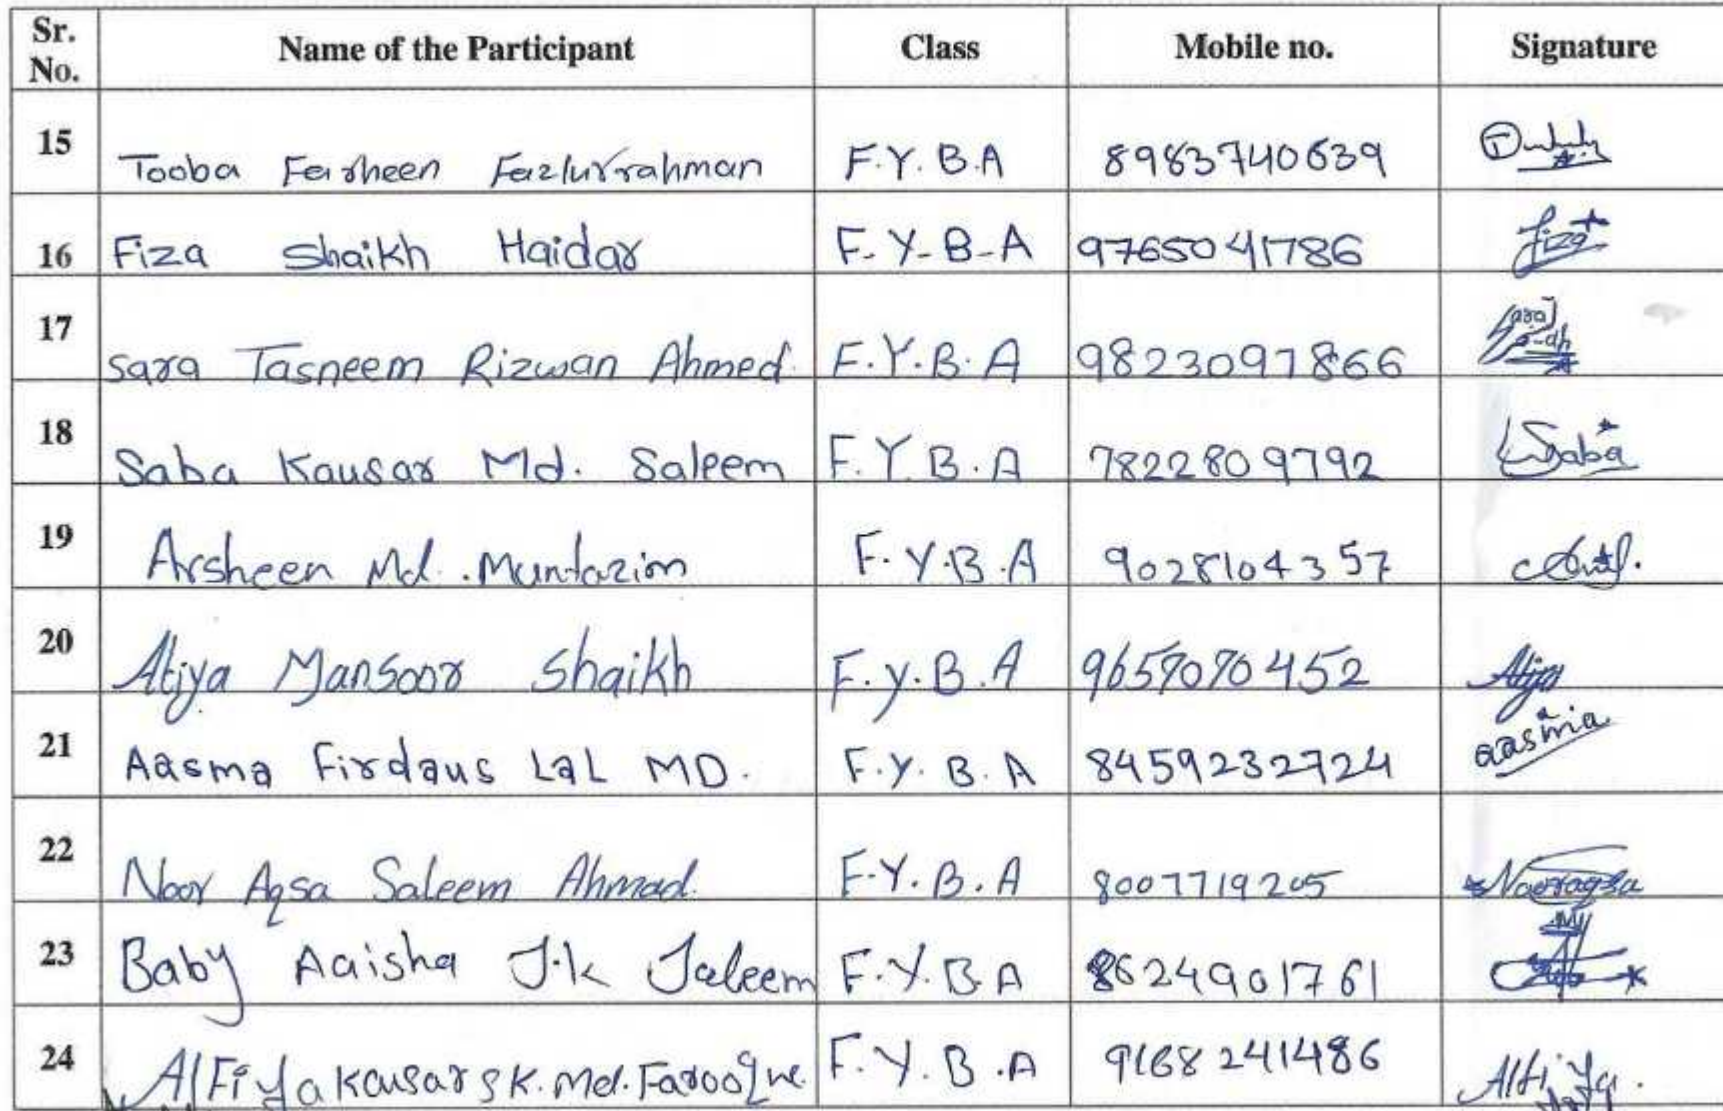 Sr. No. Name of the Participant Class Mobile no. Signature
15 Tooba Farheen Fazlurrahman F.Y.B.A 8983740639
16 Fiza Shaikh Haidar F-Y-B-A 9765041786 fiza
17 Sara Tasneem Rizwan Ahmed. F.Y.B.A 9823097866
18 Saba Kausar Md. Saleem F.Y.B.A 7822809792 Saba
19 Arsheen Md. Muntazim F.Y.B.A 9028104357
20 Atiya Mansoor Shaikh F.Y.B.A 9657070452 Atiya
21 Aasma Firdaus Lal MD. F.Y.B.A 8459232724 aasma
22 Noor Aqsa Saleem Ahmad. F.Y.B.A 8007719205 Nooraqsa
23 Baby Aaisha J.k Jaleem F.Y.B.A 8624901761
24 AlFiya kausar sk. Md. Farooque F.Y.B.A 9168241486 Alfiya.